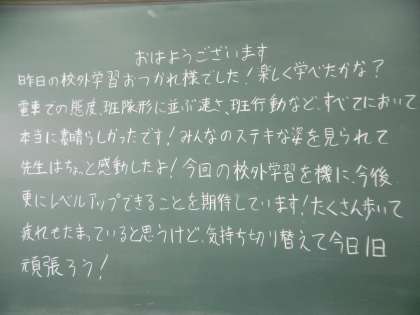 おはようございます
昨日の校外学習おつかれ様でした！楽しく学べたかな？
電車での態度、班隊形に並ぶ速さ、班行動など、すべてにおいて
本当に素晴らしかったです！みんなのステキな姿を見られて
先生はちょっと感動したよ！今回の校外学習を機に、今後
更にレベルアップできることを期待しています！たくさん歩いて
疲れもたまっていると思うけど、気持ち切り替えて今日1日
頑張ろう！